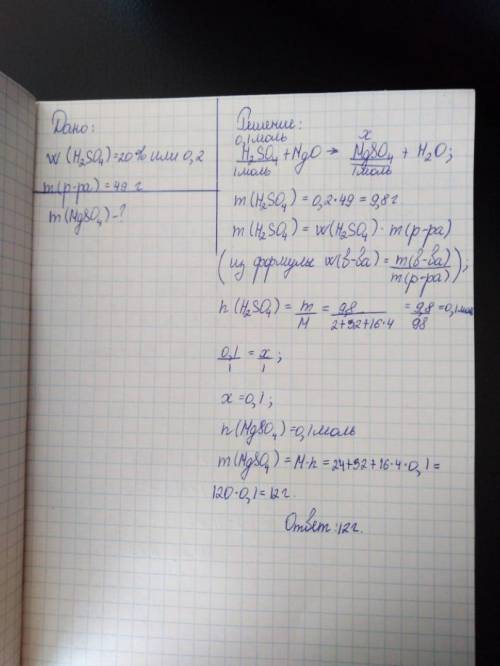 Дано:
w(H₂SO₄)=20% или 0,2
m(р-ра)=49 г
m(MgSO₄)-?
Решение:
0,1моль x
H₂SO₄+MgO → MgSO₄ + H₂O;
1моль 1моль
m(H₂SO₄)=0,2·49=9,8г
m(H₂SO₄)=w(H₂SO₄)·m(р-ра)
(из формулы w(в-ва)=m(в-ва)/m(р-ра));
n(H₂SO₄)=m/M=9,8/2+32+16·4=9,8/98=0,1моль
0,1/1=x/1;
x=0,1;
n(MgSO₄)=0,1моль
m(MgSO₄)=M·n=24+32+16·4·0,1=
120·0,1=12г.
Ответ:12г.